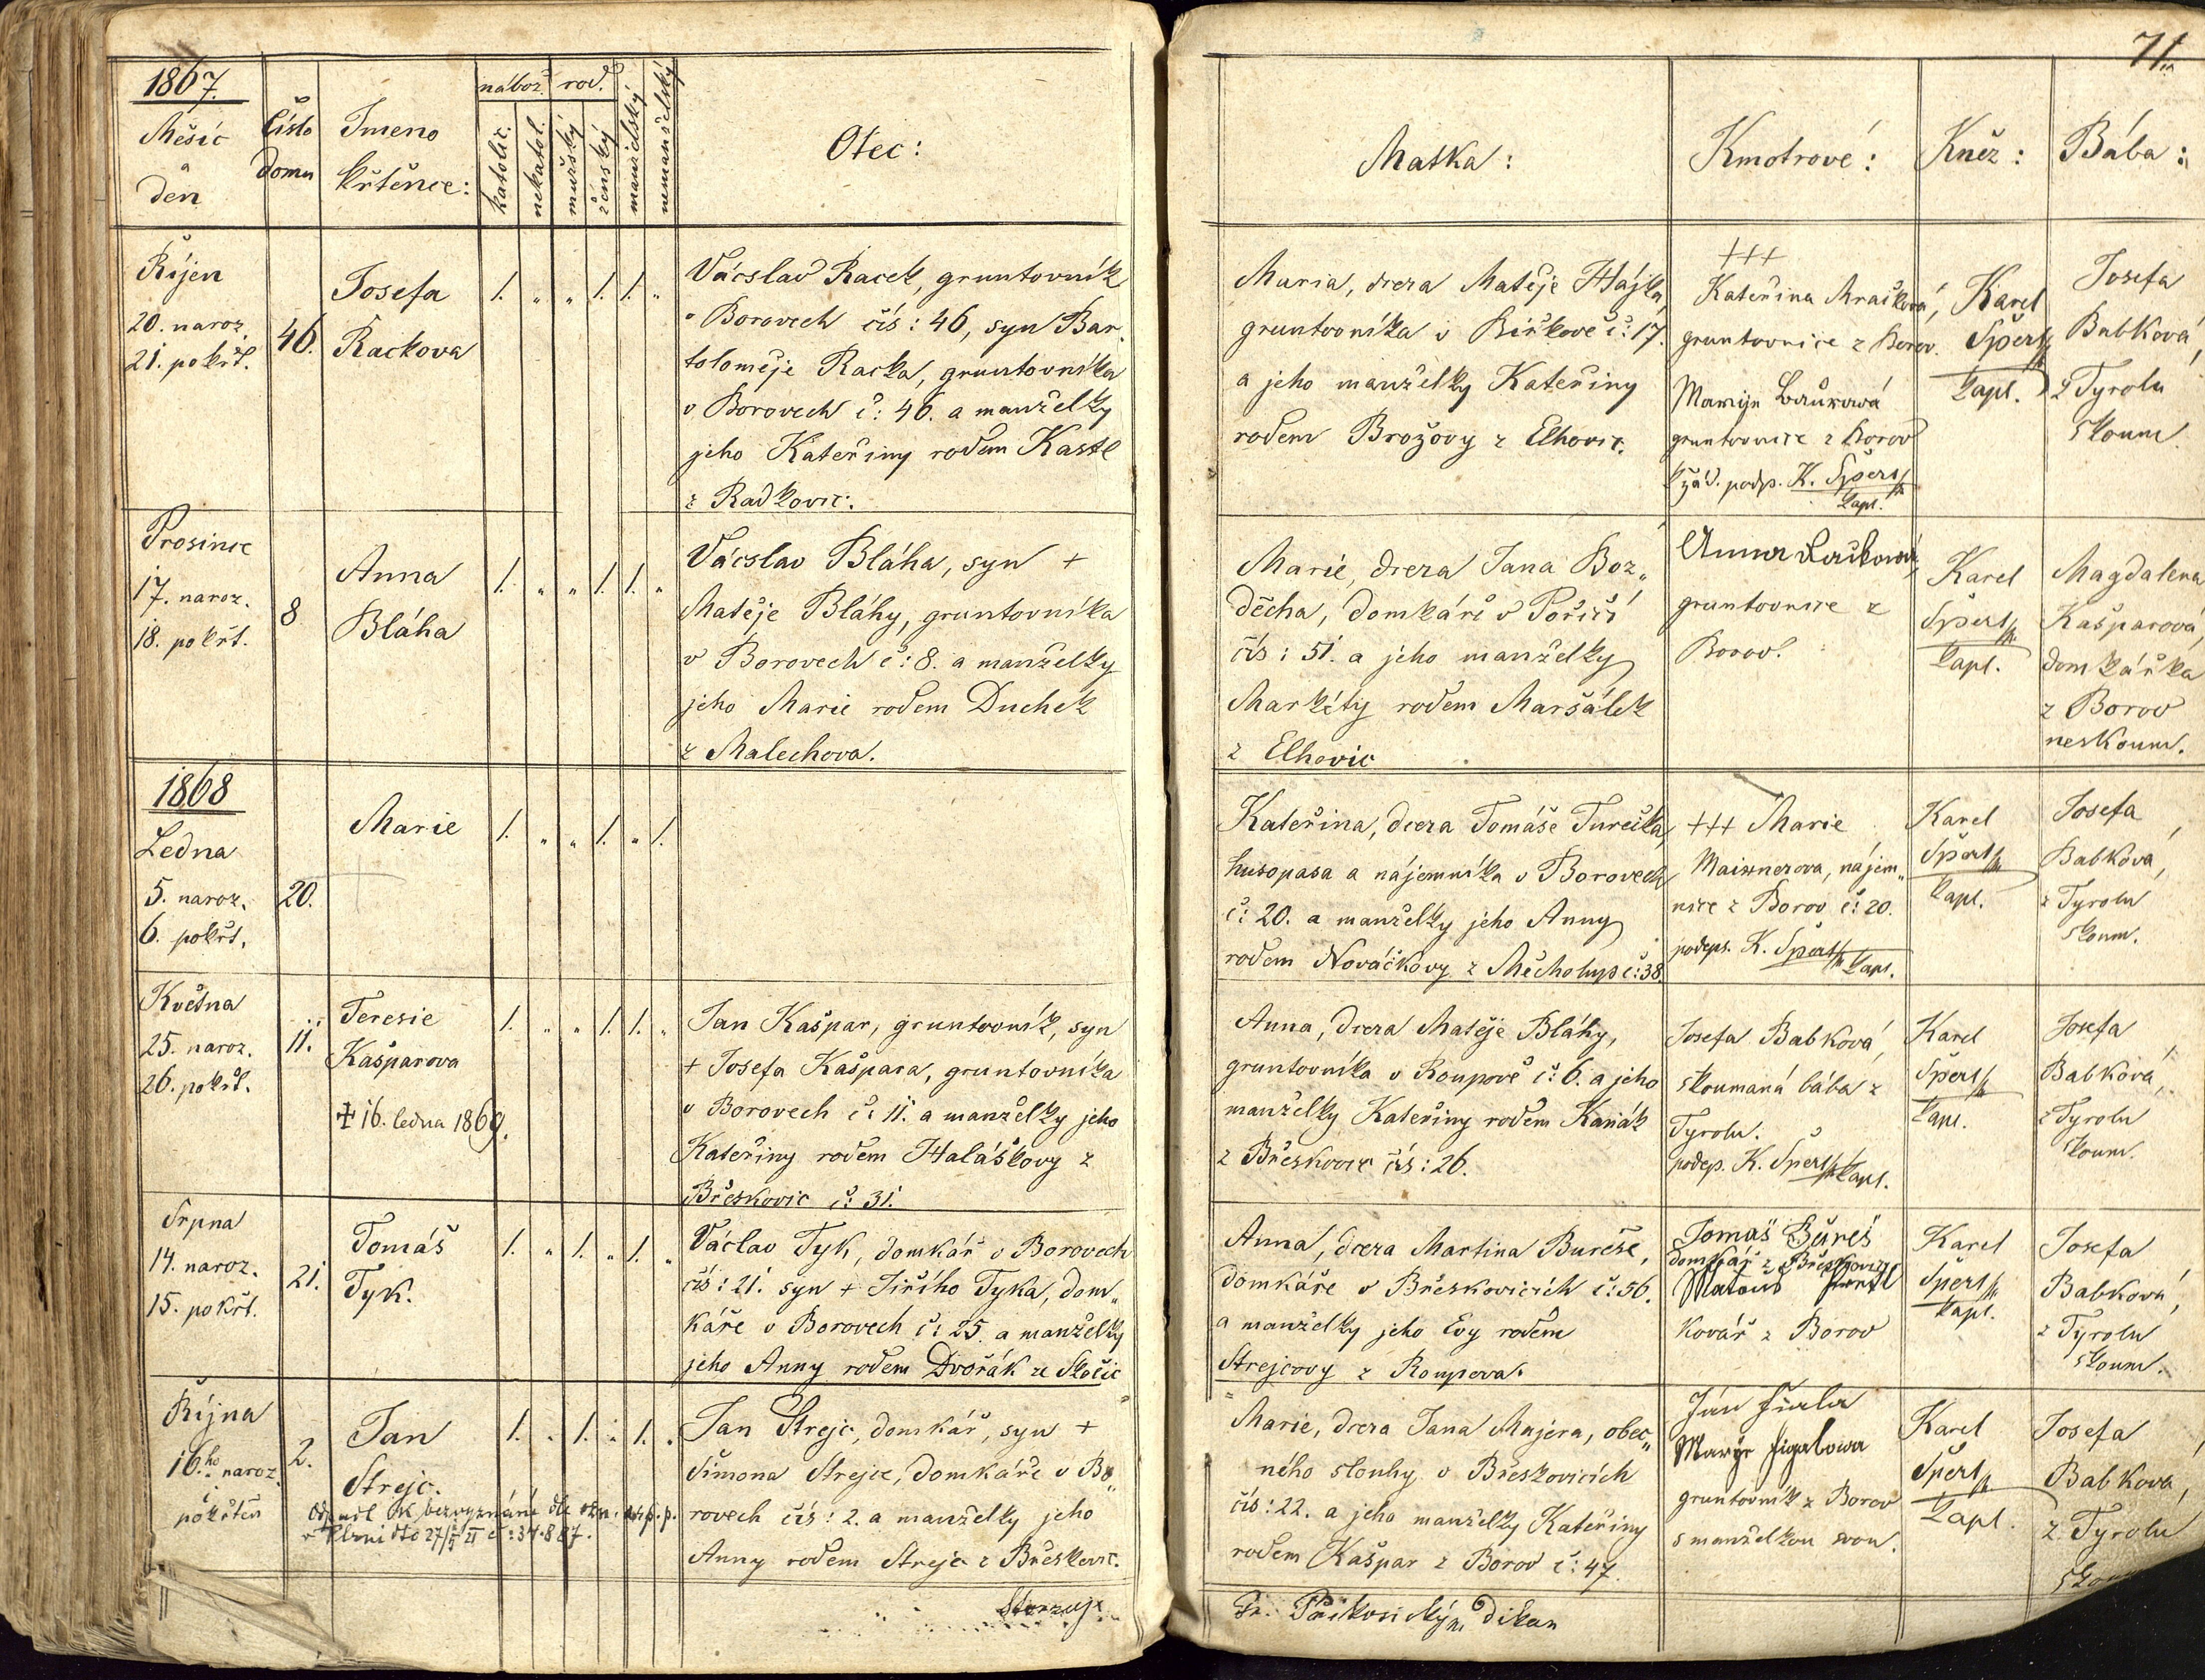 71.
1867.
Měsíc
a
den
Číslo
domu
Jmeno
křtěnce:
nábož.
rod.
katolic.
nekatol.
mužský
ženský
manželský
nemanželský
Otec:
Matka:
Kmotrové:
Kněz:
Bába:
Říjen
20. naroz.
21. pokřt.
46.
Josefa
Rackova
1. „ „ 1. 1. „
Vácslav Racek, gruntovník
v Borovech čís: 46, syn Bar-
toloměje Racka, gruntovníka
v Borovech č: 46. a manželky
jeho Kateřiny rodem Kastl
z Radkovic.
Maria, dcera Matěje Hájka,
gruntovníka v Biřkově č: 17.
a jeho manželky Kateřiny
rodem Brožovy z Elhovic.
+++
Kateřina Mraskova,
gruntovnice z Borov.
Maryje
gruntovnice z Borov
podp. K. Šperl
kapl.
Karel
Šperl
kapl.
Josefa
Babková,
z Tyrolu
skoum.
Prosince
17. naroz.
18. pokřt.
8
Anna
Bláha
1. „ „ 1. 1. „
Vácslav Bláha, syn +
Matěje Bláhy, gruntovníka
v Borovech č: 8. a manželky
jeho Marie rodem Duchek
z Malechova.
Marie, dcera Jana Boz„
děcha, domkáře v Poříčí
čís: 51. a jeho manželky
Markéty rodem Maršálek
z Elhovic
Anna
gruntovnice z
Borov.
Karel
Šperl
kapl.
Magdalena
Kašparová,
domkářka
z Borov
neskoum.
1868
Ledna
5. naroz.
6. pokřt.
20.
Marie
1. „ „ 1. „ 1.
Kateřina, dcera Tomáše Turečka,
husopasa a nájemníka v Borovech
č: 20. a manželky jeho Anny
rodem Nováčkovy z Měcholup č: 38.
+++ Marie
Maixnerova, nájem„
nice z Borov č: 20.
podeps. K. Šperl kapl.
Karel
Šperl
kapl.
Josefa
Babková,
z Tyrolu
skoum.
Května
25. naroz.
26. pokřt.
11.
Teresie
Kašparova
+ 16. ledna 1869.
1. „ „ 1. 1. „
Jan Kašpar, gruntovník, syn
+ Josefa Kašpara, gruntovníka
v Borovech č: 11. a manželky jeho
Kateřiny rodem Haláškovy z
Břeskovic č: 31.
Anna, dcera Matěje Bláhy,
gruntovníka v Roupově č: 6. a jeho
manželky Kateřiny rodem Kaňák
z Břeskovic čís: 26.
Josefa Babková,
skoumaná bába z
Tyrolu.
podep. K. Šperl kapl.
Karel
Šperl
kapl.
Josefa
Babková,
z Tyrolu
skoum.
Srpna
14. naroz.
15. pokřt.
21.
Tomáš
Tyk.
1. „ 1. „ 1. „
Václav Tyk, domkář v Borovech
čís: 21. syn + Jiřího Tyka, dom„
káře v Borovech č: 25. a manželky
jeho Anny rodem Dvořák ze Skočic
Anna, dcera Martina Bureše,
domkáře v Břeskovicích č: 56.
a manželky jeho Evy rodem
Strejcovy z Roupova.
Tomáš Bureš
domkář z Břeskovic
Matouš
Kovář z Borov
Karel
Šperl
kapl.
Josefa
Babková,
z Tyrolu
skoum.
Října
16.ho naroz.
i
pokřtěn
2.
Jan
Strejc.
1. „ 1. „ 1. „
v Plzni dto 27/5 č: 34.887.
Jan Strejc, domkář, syn +
Šimona Strejce, domkáře v Bo„
rovech čís: 2. a manželky jeho
Anny rodem Strejc z Břeskovic.
Marie, dcera Jana Majera, obec„
ného slouhy v Břeskovicích
čís: 22. a jeho manželky Kateřiny
rodem Kašpar z Borov č: 47.
Jan Fiala
Marye
gruntovník z Borov
s manželkou svou.
Karel
Šperl
kapl.
Josefa
Babková,
z Tyrolu
Fr. děkan